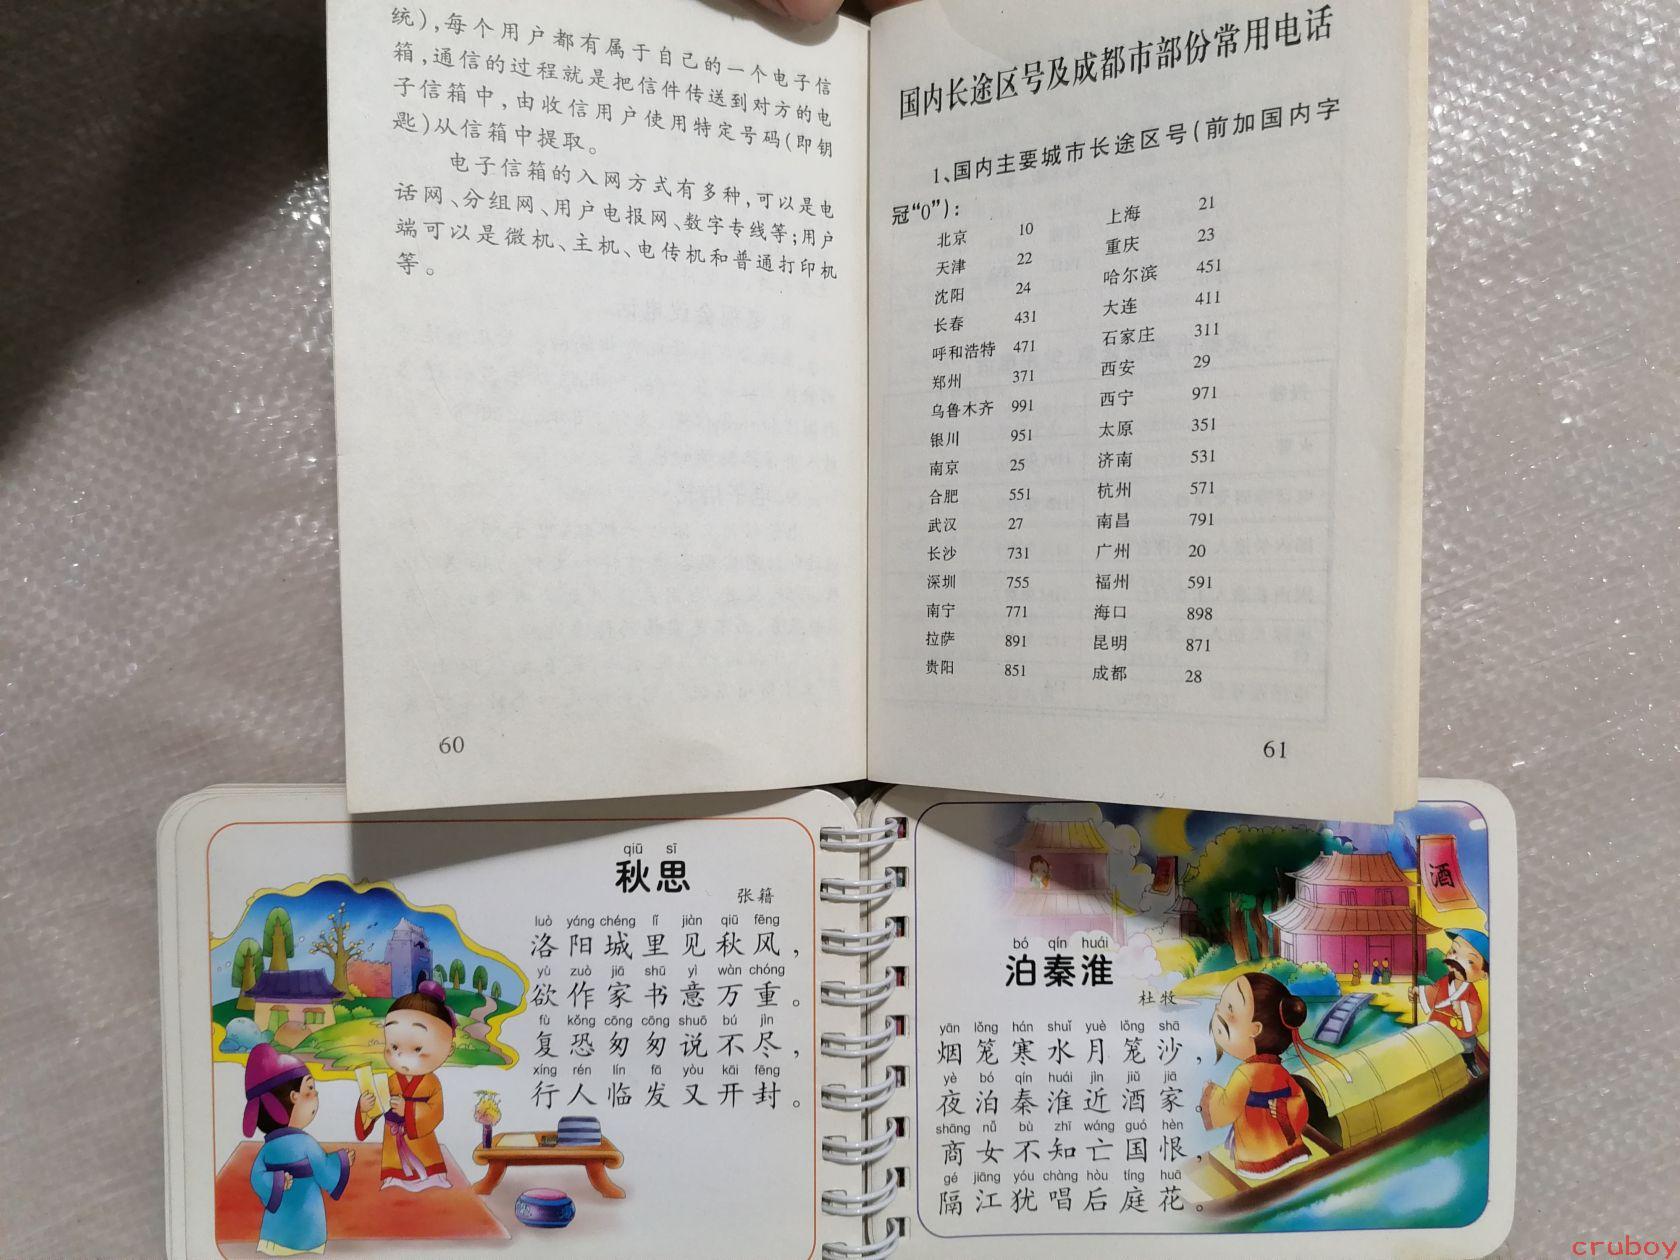 统),每个用户都有属于自己的一个电子信
箱,通信的过程就是把信件传送到对方的电
子信箱中,由收信用户使用特定号码(即钥
匙)从信箱中提取。
电子信箱的入网方式有多种,可以是电
话网、分组网、用户电报网、数字专线等;用户
端可以是微机、主机、电传机和普通打印机
等。
60
国内长途区号及成都市部份常用电话
1、国内主要城市长途区号(前加国内字
冠“0”):
北京 10 上海 21
天津 22 重庆 23
沈阳 24 哈尔滨 451
长春 431 大连 411
呼和浩特 471 石家庄 311
郑州 371 西安 29
乌鲁木齐 991 西宁 971
银川 951 太原 351
南京 25 济南 531
合肥 551 杭州 571
武汉 27 南昌 791
长沙 731 广州 20
深圳 755 福州 591
南宁 771 海口 898
拉萨 891 昆明 871
贵阳 851 成都 28
61
qiū sī
秋思
张籍
luò yáng chéng lǐ jiàn qiū fēng
洛阳城里见秋风,
yù zuò jiā shū yì wàn chóng
欲作家书意万重。
fù kǒng cōng cōng shuō bú jìn
复恐匆匆说不尽,
xíng rén lín fā yòu kāi fēng
行人临发又开封。
bó qín huái
泊秦淮
杜牧
yān lǒng hán shuǐ yuè lǒng shā
烟笼寒水月笼沙,
yè bó qín huái jìn jiǔ jiā
夜泊秦淮近酒家。
shāng nǚ bù zhī wáng guó hèn
商女不知亡国恨,
gé jiāng yóu chàng hòu tíng huā
隔江犹唱后庭花。
酒
cruboy